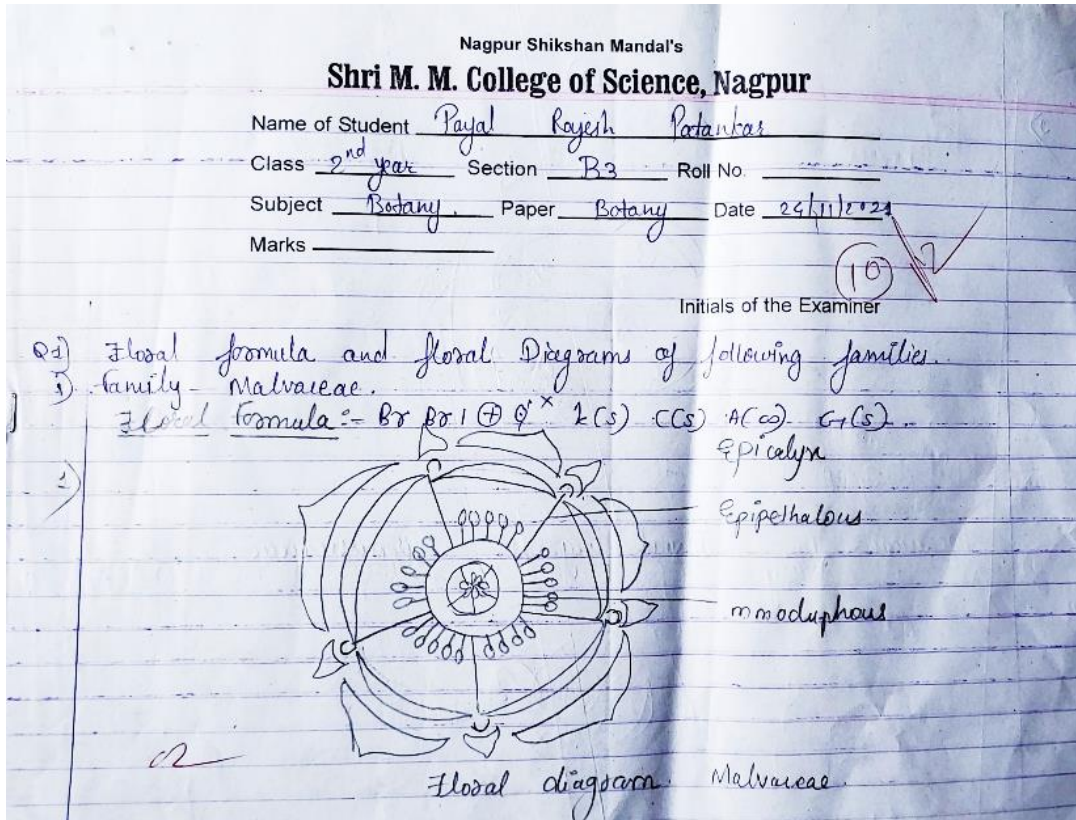 Nagpur Shikshan Mandal's
Shri M. M. College of Science, Nagpur
Name of Student Payal Rajesh Patankar
Class 2nd year Section B3 Roll No.
Subject Botany. Paper Botany Date 24/11/2021
Marks
10
Initials of the Examiner
Q1) Floral formula and floral Diagrams of following families.
1) family - Malvaceae.
Floral formula :- Br Brl ⊕ ⚥ K(5) C(5) A(∞) G(5)
Epicalyx
1)
Epipethalous
02
Floral diagram. Malvaceae.